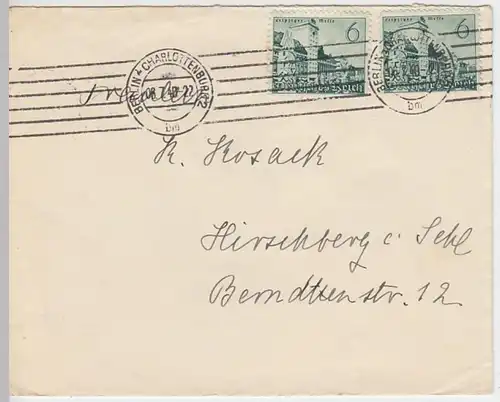 Leipziger Messe 6 Leipziger Messe 6
Deutsches Reich
BERLIN-CHARLOTTENBURG 2
BERLIN-CHARLOTTENBURG 2
bm bm
Drucksache
K. Kosack
Hirschberg i. Schl
Berndtenstr. 12